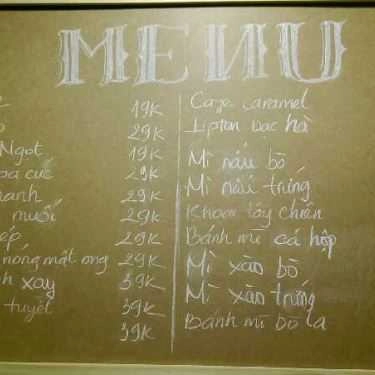 MENU
19K
29K
Ngot 19K
hoa cúc 29K
chanh 29K
muối 29K
29K
nóng mật ong 29K
xay 39K
tuyết 39K
39K
Caʒe caramel
Lipton bạc hà
Mì nấu bò
Mì nấu trứng
Khoai tây chiên
Bánh mì cá hộp
Mì xào bò
Mì xào trứng
Bánh mì bò la